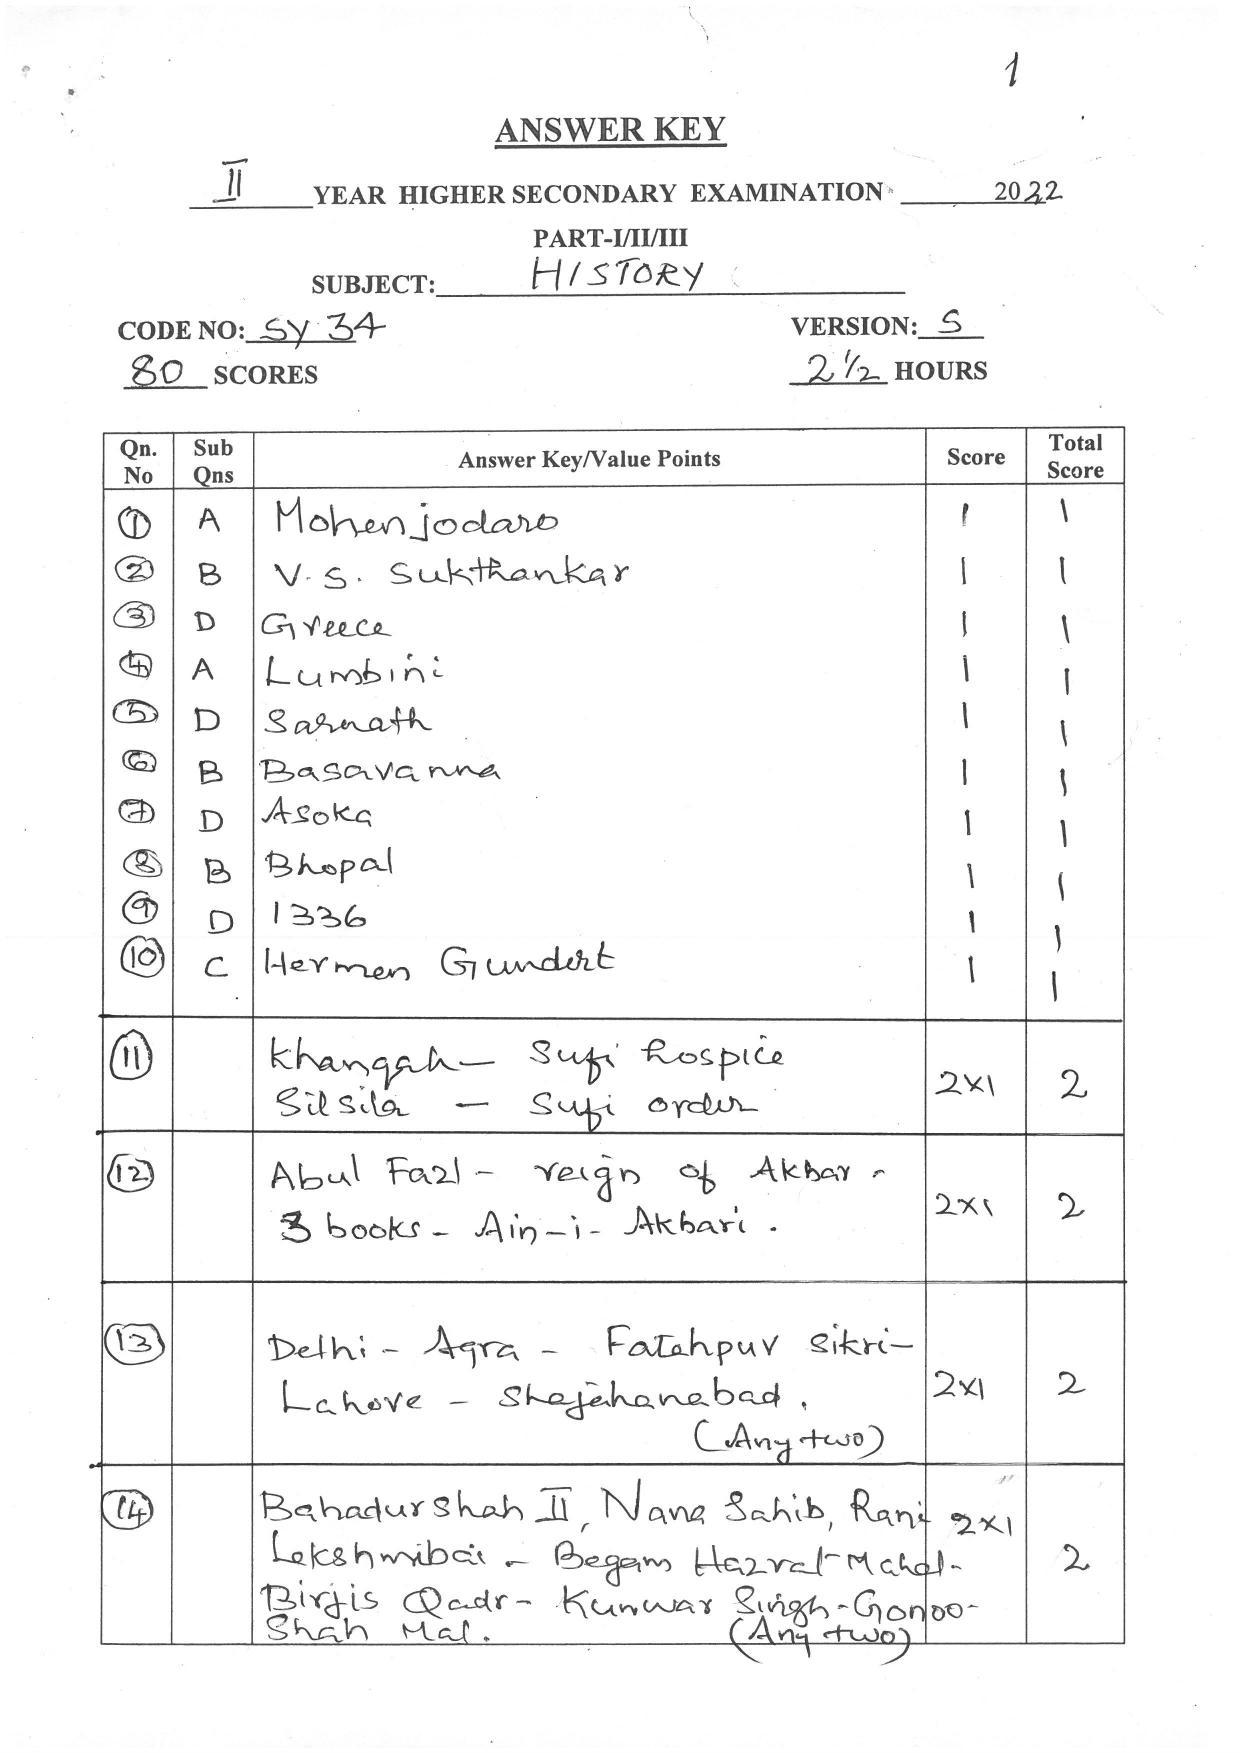 1
ANSWER KEY
II YEAR HIGHER SECONDARY EXAMINATION 2022
PART-I/II/III
SUBJECT: HISTORY
CODE NO: SY 34 VERSION: S
80 SCORES 2 1/2 HOURS
Qn. No Sub Qns Answer Key/Value Points Score Total Score
1 A Mohenjodaro 1 1
2 B V. S. Sukthankar 1 1
3 D Greece 1 1
4 A Lumbini 1 1
5 D Sarnath 1 1
6 B Basavanna 1 1
7 D Asoka 1 1
8 B Bhopal 1 1
9 D 1336 1 1
10 C Hermen Gundert 1 1
11 Khanqah - Sufi hospice
Silsila - Sufi order 2x1 2
12 Abul Fazl - reign of Akbar -
3 books - Ain-i-Akbari. 2x1 2
13 Delhi - Agra - Fatehpur Sikri-
Lahore - Shajahanabad. 2x1 2
(Any two)
14 Bahadur Shah II, Nana Sahib, Rani 2x1
Lekshmibai - Begam Hazrat Mahal- 2
Birjis Qadr - Kunwar Singh - Gonoo-
Shah Mal. (Any two)